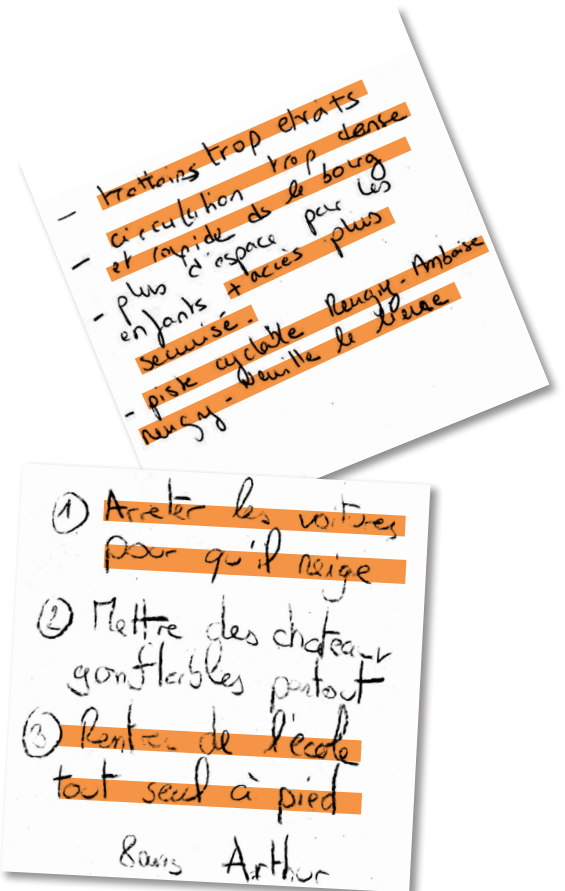 - trottoirs trop etroits
- circulation trop dense
et rapide ds le bourg
- plus d'espace pour les
enfants + accès plus
securisé.
- piste cyclable Reugny - Amboise
reugny - Neuillé le lierre
① Arreter les voitures
pour qu'il neige
② Mettre des chateaux
gonflables partout
③ Rentrer de l'école
tout seul à pied
8 ans Arthur